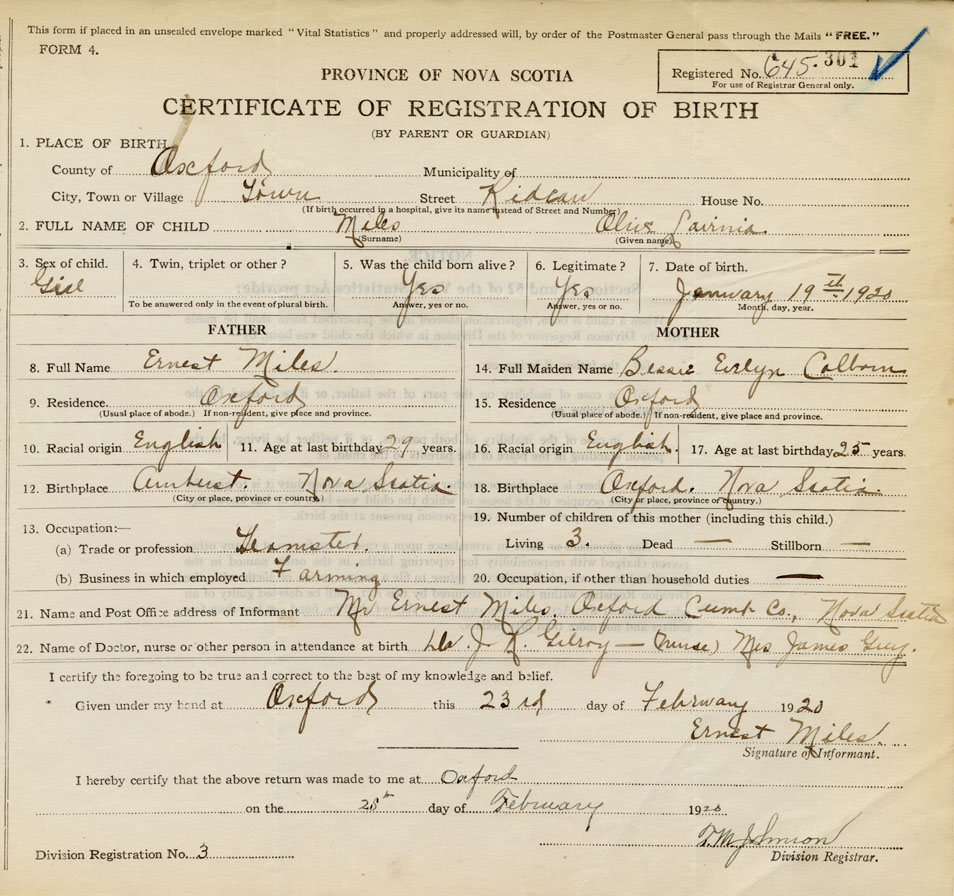 This form if placed in an unsealed envelope marked "Vital Statistics" and properly addressed will, by order of the Postmaster General pass through the Mails "FREE."
FORM 4.
Registered No. 645.301
For use of Registrar General only.
PROVINCE OF NOVA SCOTIA
CERTIFICATE OF REGISTRATION OF BIRTH
(BY PARENT OR GUARDIAN)
1. PLACE OF BIRTH
County of Oxford Municipality of
City, Town or Village Town Street Rideau House No.
(If birth occurred in a hospital, give its name instead of Street and Number)
2. FULL NAME OF CHILD Miles Olive Lavinia
(Surname) (Given name)
3. Sex of child. 4. Twin, triplet or other? 5. Was the child born alive? 6. Legitimate? 7. Date of birth.
Girl Yes Yes January 19th 1920
To be answered only in the event of plural birth. Answer, yes or no. Answer, yes or no. Month, day, year.
FATHER
8. Full Name Ernest Miles.
9. Residence. Oxford
(Usual place of abode.) If non-resident, give place and province.
10. Racial origin English 11. Age at last birthday 29 years.
12. Birthplace Amherst. Nova Scotia.
(City or place, province or country.)
13. Occupation:—
(a) Trade or profession. Teamster.
(b) Business in which employed Farming
MOTHER
14. Full Maiden Name Bessie Evelyn Colborn
15. Residence Oxford
(Usual place of abode.) If non-resident, give place and province.
16. Racial origin English. 17. Age at last birthday 25 years.
18. Birthplace Oxford. Nova Scotia.
(City or place, province or country.)
19. Number of children of this mother (including this child.)
Living 3. Dead — Stillborn —
20. Occupation, if other than household duties —
21. Name and Post Office address of Informant Mr Ernest Miles. Oxford Cumb Co., Nova Scotia
22. Name of Doctor, nurse or other person in attendance at birth J. R. Gilroy — (nurse) Mrs James Guy.
I certify the foregoing to be true and correct to the best of my knowledge and belief.
Given under my hand at Oxford this 23rd day of February 1920
Ernest Miles.
Signature of Informant.
I hereby certify that the above return was made to me at Oxford
on the 28th day of February 1920
T. M. Johnson
Division Registrar.
Division Registration No. 3